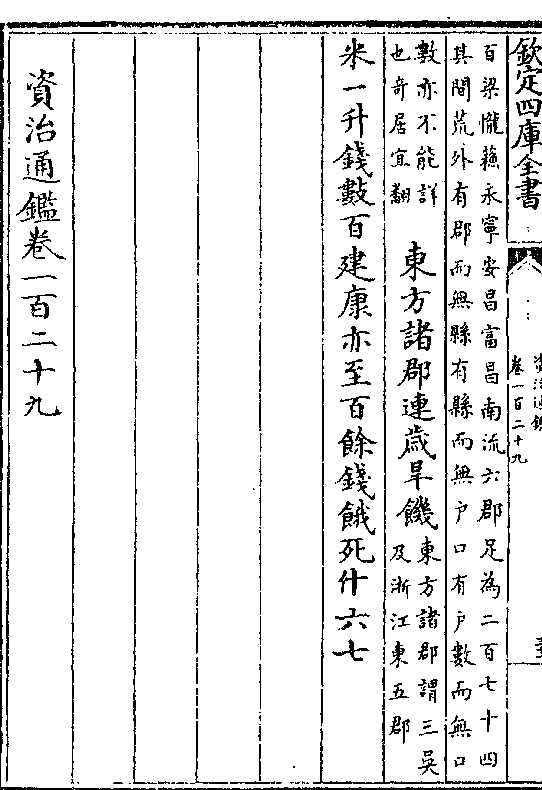 欽定四庫全書
資治通鑑
卷一百二十九
百梁懭蘓永寧安昌富昌南流六郡足為二百七十四
其間荒外有郡而無縣有縣而無户口有户數而無口
數亦不能詳
也竒居宜翻
東方諸郡連歳旱饑
東方諸郡謂三吳
及浙江東五郡
米一升錢數百建康亦至百餘錢餓死什六七
資治通鑑卷一百二十九